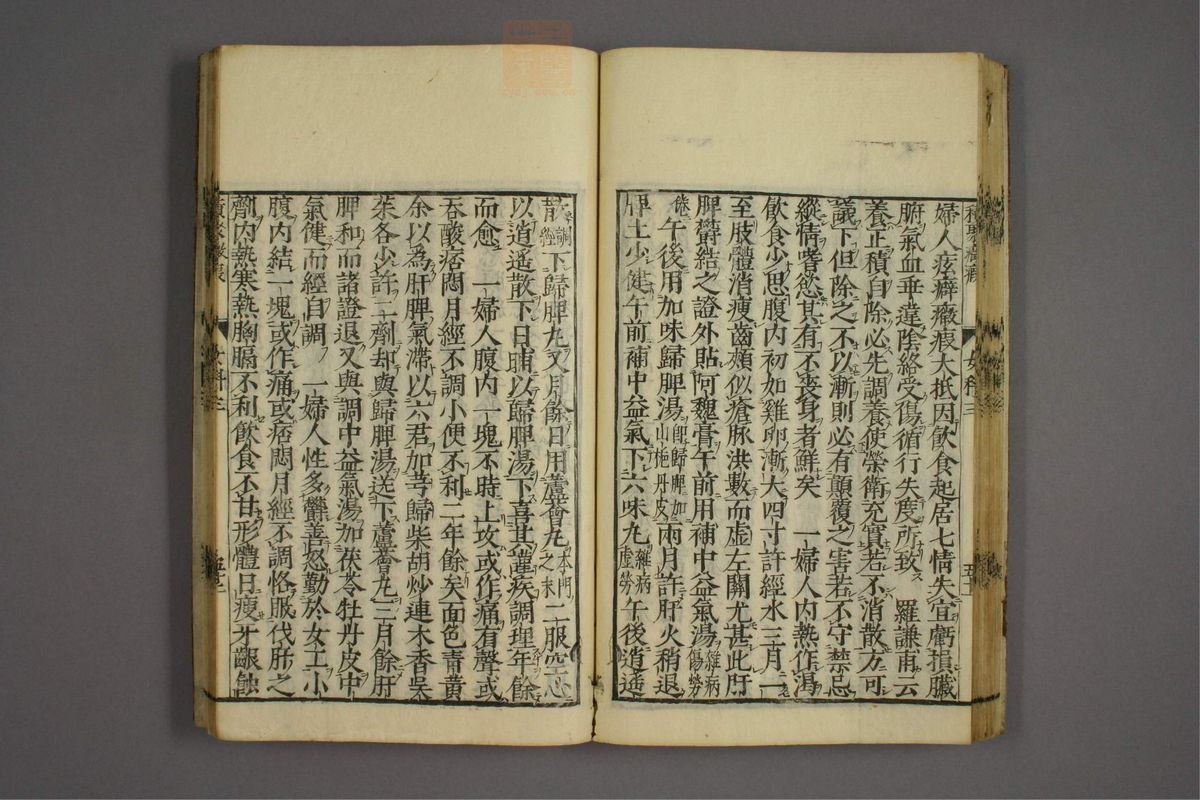 婦人痃癖癥瘕大抵因飲食起居七情失宜虧損臟
腑氣血乖違陰絡受傷循行失度所致　羅謙甫云
養正積自除必先調養使榮衛充實若不消散方可
議下但除之不以漸則必有顛覆之害若不守禁忌
縱情嗜慾其有不喪身者鮮矣　一婦人內熱作渴
飲食少思腹內初如雞卵漸大四寸許經水三月一
至肢體消瘦齒頰似瘡脉洪數而虛左關尤甚此肝
脾鬱結之證外貼阿魏膏午前用補中益氣湯雜病勞傷
倦午後用加味歸脾湯即歸脾加山梔丹皮兩月許肝火稍退
脾土少健午前補中益氣下六味丸雜病虛勞午後逍遙
散調經下歸脾丸又月餘日用蘆薈丸本門之末二服空心
以逍遙散下日晡以歸脾湯下喜其謹疾調理年餘
而愈　一婦人腹內一塊不時上攻或作痛有聲或
吞酸痞悶月經不調小便不利二年餘矣面色青黃
余以為肝脾氣滯以六君加芎歸柴胡炒連木香吳
茱各少許二劑却與歸脾湯送下蘆薈丸三月餘肝
脾和而諸證退又與調中益氣湯加茯苓牡丹皮中
氣健而經自調　一婦人性多鬱善怒勤於女工小
腹內結一塊或作痛或痞悶月經不調恪服伐肝之
劑內熱寒熱胸膈不利飲食不甘形體日瘦牙齦蝕
女科三
女科三